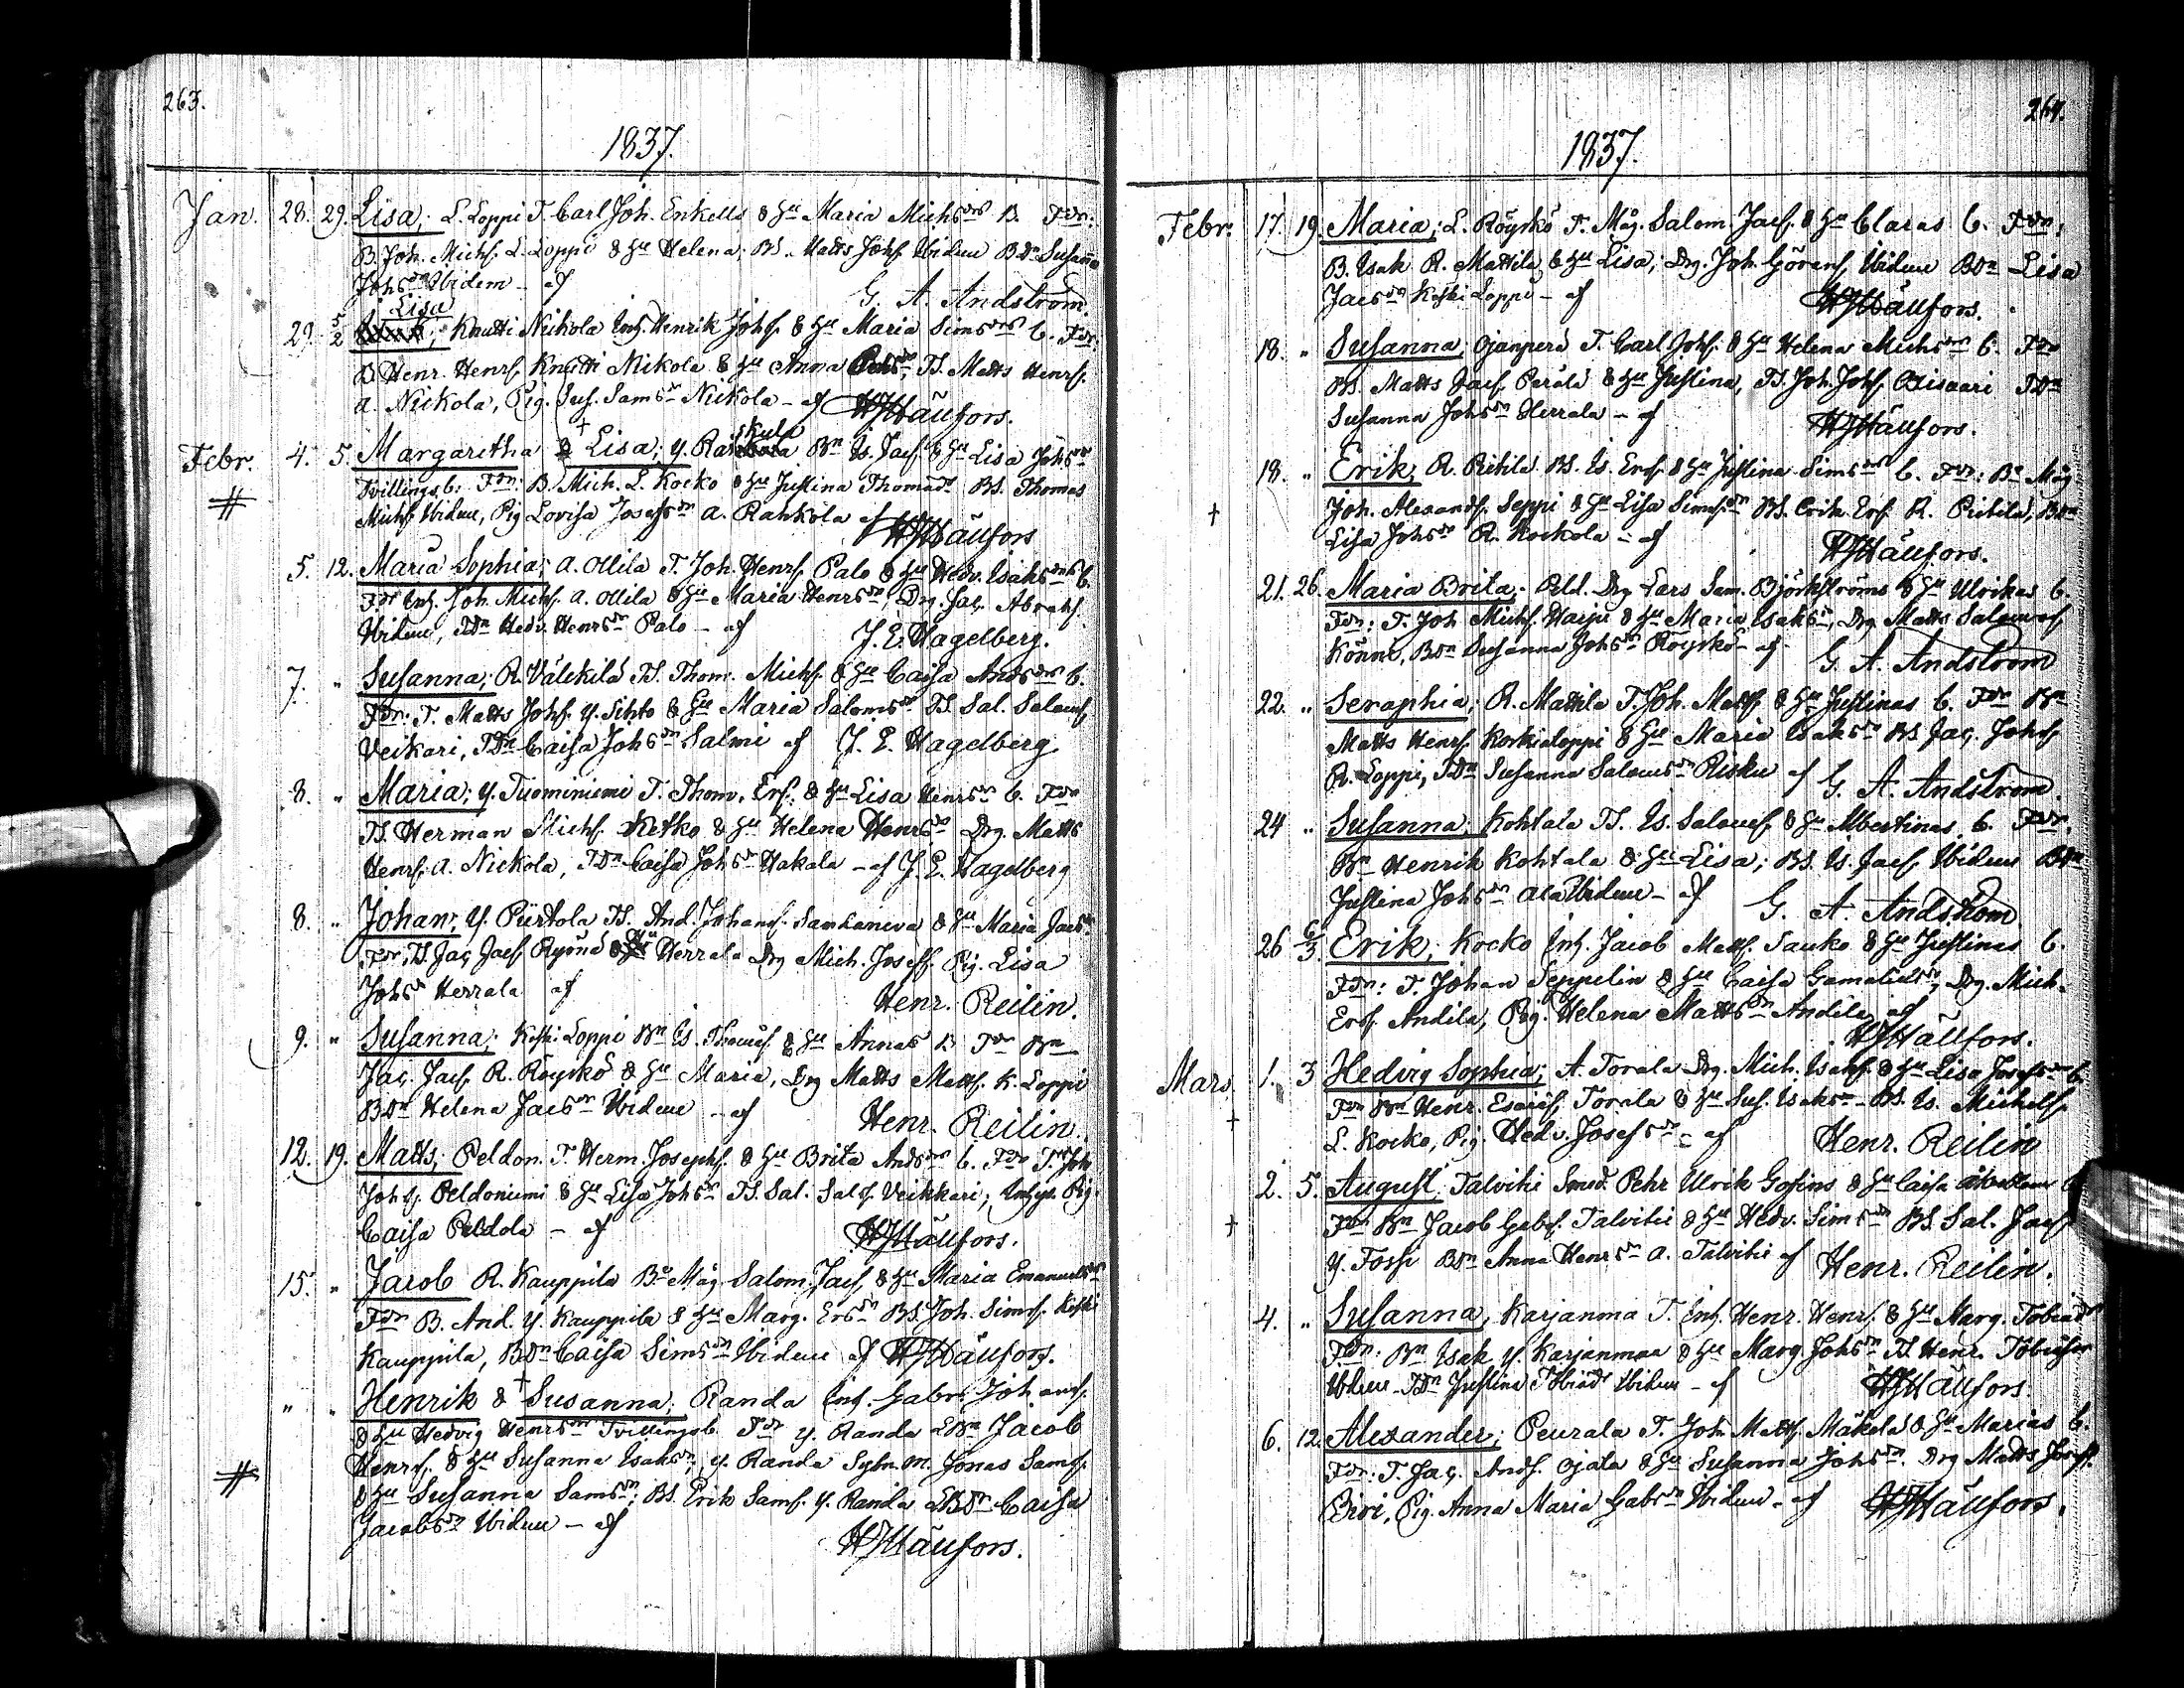 263.
1837.
Jan. 28. 29. Lisa; L. Loppi T. Carl Joh. Enkells & Hu Maria Michsdrs B. Fdr:
B. Joh. Michs. L. Loppi & Hu Helena; BS. Matts Johs. Ibidem BDr Susanna
Johsdr Ibidem - af G. A. Andström.
Lisa
29. 5/2 Knutti Nickola Inh. Henrik Johs. & Hu Maria Simsdrs b. Fdr.
B. Henr. Henrs. Knutti Nikola & Hu Anna TS. Matts Henrs.
a. Nickola, Pig. Sus. Samsdr Nikola - af
skula
Febr. 4. 5. Margaretha & † Lisa; Y. Ra Bn Is. Jacs. & Hu Lisa Johsdr
Tvillings b: Fdr: B. Mich. L. Kocko & Hu Justina Thomadr BS. Thomas
Michs. Ibidem, Pig Lovisa Josefsdr a. Rankola af
5. 12. Maria Sophia; a. Ollila T. Joh. Henrs. Palo & Hu Hedv. Isaksdrs b.
Fdr Inh. Joh. Michs. a. Ollila & Hu Maria Henrsdr, Drg. Jac. Abrahs.
Ibidem, TDr Hedv. Henrsdr Palo - af J. E. Hagelberg.
7. " Susanna; R. Välikilä TS. Thom. Michs. & Hu Caisa Andsdrs b.
Fdr: T. Matts Johs. Y. Sihto & Hu Maria Salomsdr TS. Sal. Saloms.
Veikari, TDr Caisa Johsdr Salmi af J. E. Hagelberg
8. " Maria; Y. Tuominiemi T. Thom. Ers. & Hu Lisa Henrsdr b. Fdr
TS. Herman Michs. Ketko & Hu Helena Henrsdr Drg. Matts
Henrs. a. Nickola, TDr Caisa Johsdr Hakala - af J. E. Hagelberg
8. " Johan; Y. Piirtola TS. And. Johans. Sandaneva & Hu Maria Jacsdr
Fdr: TS. Jac Jacs. Ryönä & Hu Herrala Drg Mich. Josefs. Pig. Lisa
Johsdr Herrala af Henr. Reilin.
9. " Susanna; Koski Loppi Bn Is. Thomæs. & Hu Annas B Fdr Bn
Jac. Jacs. R. Röyskö & Hu Maria, Drg Matts Matts. K. Loppi
BDr Helena Jacsdr Ibidem - af Henr. Reilin.
12. 19. Matts; Peldon. T. Herm. Josephs. & Hu Brita Andsdrs b. Fdr T. Joh.
Johs. Peldoniemi & Hu Lisa Johsdr TS. Sal. Sals. Veikkari; Pig.
Caisa Peldola - af
15. " Jacob R. Kauppila Be Måg Salom. Jacs. & Hu Maria Emanuelsdr
Fdr B. And. Y. Kauppila & Hu Marg. Ersdr BS. Joh. Sims. Keski
Kauppila, BDr Caisa Simsdr Ibidem af
" " Henrik & † Susanna; Randa Inh. Gabr. Johans.
& Hu Hedvig Henrsdrs Tvillings b. Fdr Y. Randa Bn Jacob
Henrs. & Hu Susanna Isaksdr; Y. Randa Sytn. m. Jonas Sams.
& Hu Susanna Samsdr; BS. Erik Sams. Y. Randa BDr Caisa
Jacobsdr Ibidem - af
264.
1837.
Febr. 17. 19. Maria; L. Röyskö T. Måg. Salom. Jacs. & Hu Claras b. Fdr;
B. Isak R. Mattila & Hu Lisa; Drg. Joh. Görans. Ibidem BDr Lisa
Jacsdr Koski Loppi - af
18. " Susanna; Ojanperä T. Carl Johs. & Hu Helena Michsdrs b. Fdr
BS. Matts Jacs. Perälä & Hu Justina, TS. Joh. Johs. Otisaari TDr
Susanna Johsdr Herrala - af
18. " Erik; R. Pitkilä BS. Is. Ers. & Hu Justina Simsdrs b. Fdr: Be Måg
† Joh. Alexands. Seppi & Hu Lisa Simsdr BS. Erik Ers. R. BDr
Lisa Johsdr R. Kockola - af
21. 26. Maria Brita; Drg Lars Sam. Björkströms & Hu Ulrikas b.
Fdr: T. Joh Michs. Harju & Hu Maria Isaksdr, Drg Matts Saloms.
Könni, BDr Susanna Johsdr Röyskö - af G. A. Andström
22. " Seraphia; R. Mattila T. Joh. Matts. & Hu Justinas b. Fdr Bn
Matts Henrs. Koskialoppi & Hu Maria Isaksdr BS Jac. Johs.
R. Loppi, TDr Susanna Salomsdr Risku af G. A. Andström.
24 " Susanna; Kohtala TS. Is. Saloms. & Hu Albertinas b. Fdr.
Bn Henrik Kohtala & Hu Lisa; BS. Is. Jacs. Ibidem BDr
Justina Johsdr Ala Ibidem - af G. A. Andström
26 6/3. Erik; Kocko Inh. Jacob Matts. Sauko & Hu Justinas b.
Fdr: T. Johan Seppelin & Hu Caisa Gamalielsdr, Drg. Mich.
Ers. Andila, Pig. Helena Mattsdr Andila af
Mars. 1. 3 Hedvig Sophia; A. Torala Drg. Mich. Isaks. & Hu Lisa Josefsdrs b.
† Fdr Bn Henr. Esaiæs. Torala & Hu Sus. Isaksdr - BS. Is. Michels.
L. Kocko, Pig. Hedv. Josefsdr - af Henr. Reilin
2. 5. August; Talvitie Smed. Pehr Ulrik Gofins & Hu Caisa
† Fdr Bn Jacob Gabs. Talvitie & Hu Hedv. Simsdr BS. Sal. Jacs.
Y. Fossi BDr Anna Henrsdr a. Talvitie af Henr. Reilin.
4. " Susanna; Karjanma T. Inh. Henr. Henrs. & Hu Marg. Tobiædr
Fdr: Bn Isak Y. Karjanmaa & Hu Marg Johsdr TS. Henr. Tobiæson
Ibidem TDr Justina Tobiædr Ibidem - af
6. 12. Alexander; Peurala T. Joh. Matts. Mäkelä & Hu Marias b.
Fdr: T. Jac. Ands. Ojala & Hu Susanna Johsdr. Drg Matts
Pig. Anna Maria Gabrsdr Ibidem - af